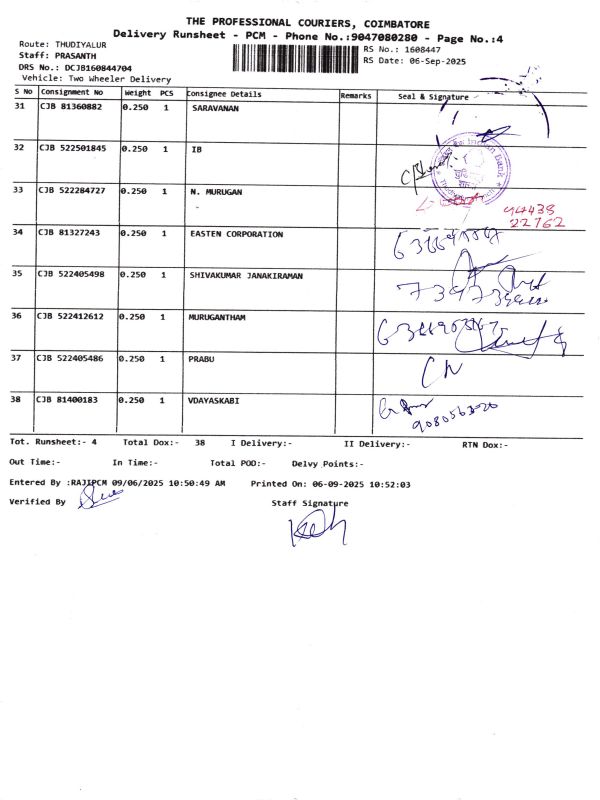 THE PROFESSIONAL COURIERS, COIMBATORE
Delivery Runsheet - PCM - Phone No.:9047080280 - Page No.:4
Route: THUDIYALUR
Staff: PRASANTH
DRS No.: DCJB160844704
Vehicle: Two Wheeler Delivery
RS No.: 1608447
RS Date: 06-Sep-2025
S No Consignment No Weight PCS Consignee Details Remarks Seal & Signature
31 CJB 81360882 0.250 1 SARAVANAN
32 CJB 522501845 0.250 1 IB
33 CJB 522284727 0.250 1 N. MURUGAN
-
94438
22762
34 CJB 81327243 0.250 1 EASTEN CORPORATION
35 CJB 522405498 0.250 1 SHIVAKUMAR JANAKIRAMAN
36 CJB 522412612 0.250 1 MURUGANTHAM
37 CJB 522405486 0.250 1 PRABU
38 CJB 81400183 0.250 1 VDAYASKABI
Tot. Runsheet:- 4 Total Dox:- 38 I Delivery:- II Delivery:- RTN Dox:-
Out Time:- In Time:- Total POD:- Delvy Points:-
Entered By :RAJIPCM 09/06/2025 10:50:49 AM Printed On: 06-09-2025 10:52:03
Verified By Staff Signature